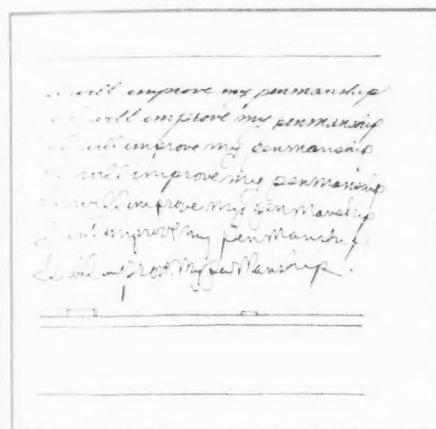 I will improve my penmanship
I will improve my penmanship
I will improve my penmanship
I will improve my penmanship
I will improve my penmanship
I will improve my penmanship
I will improve my penmanship.